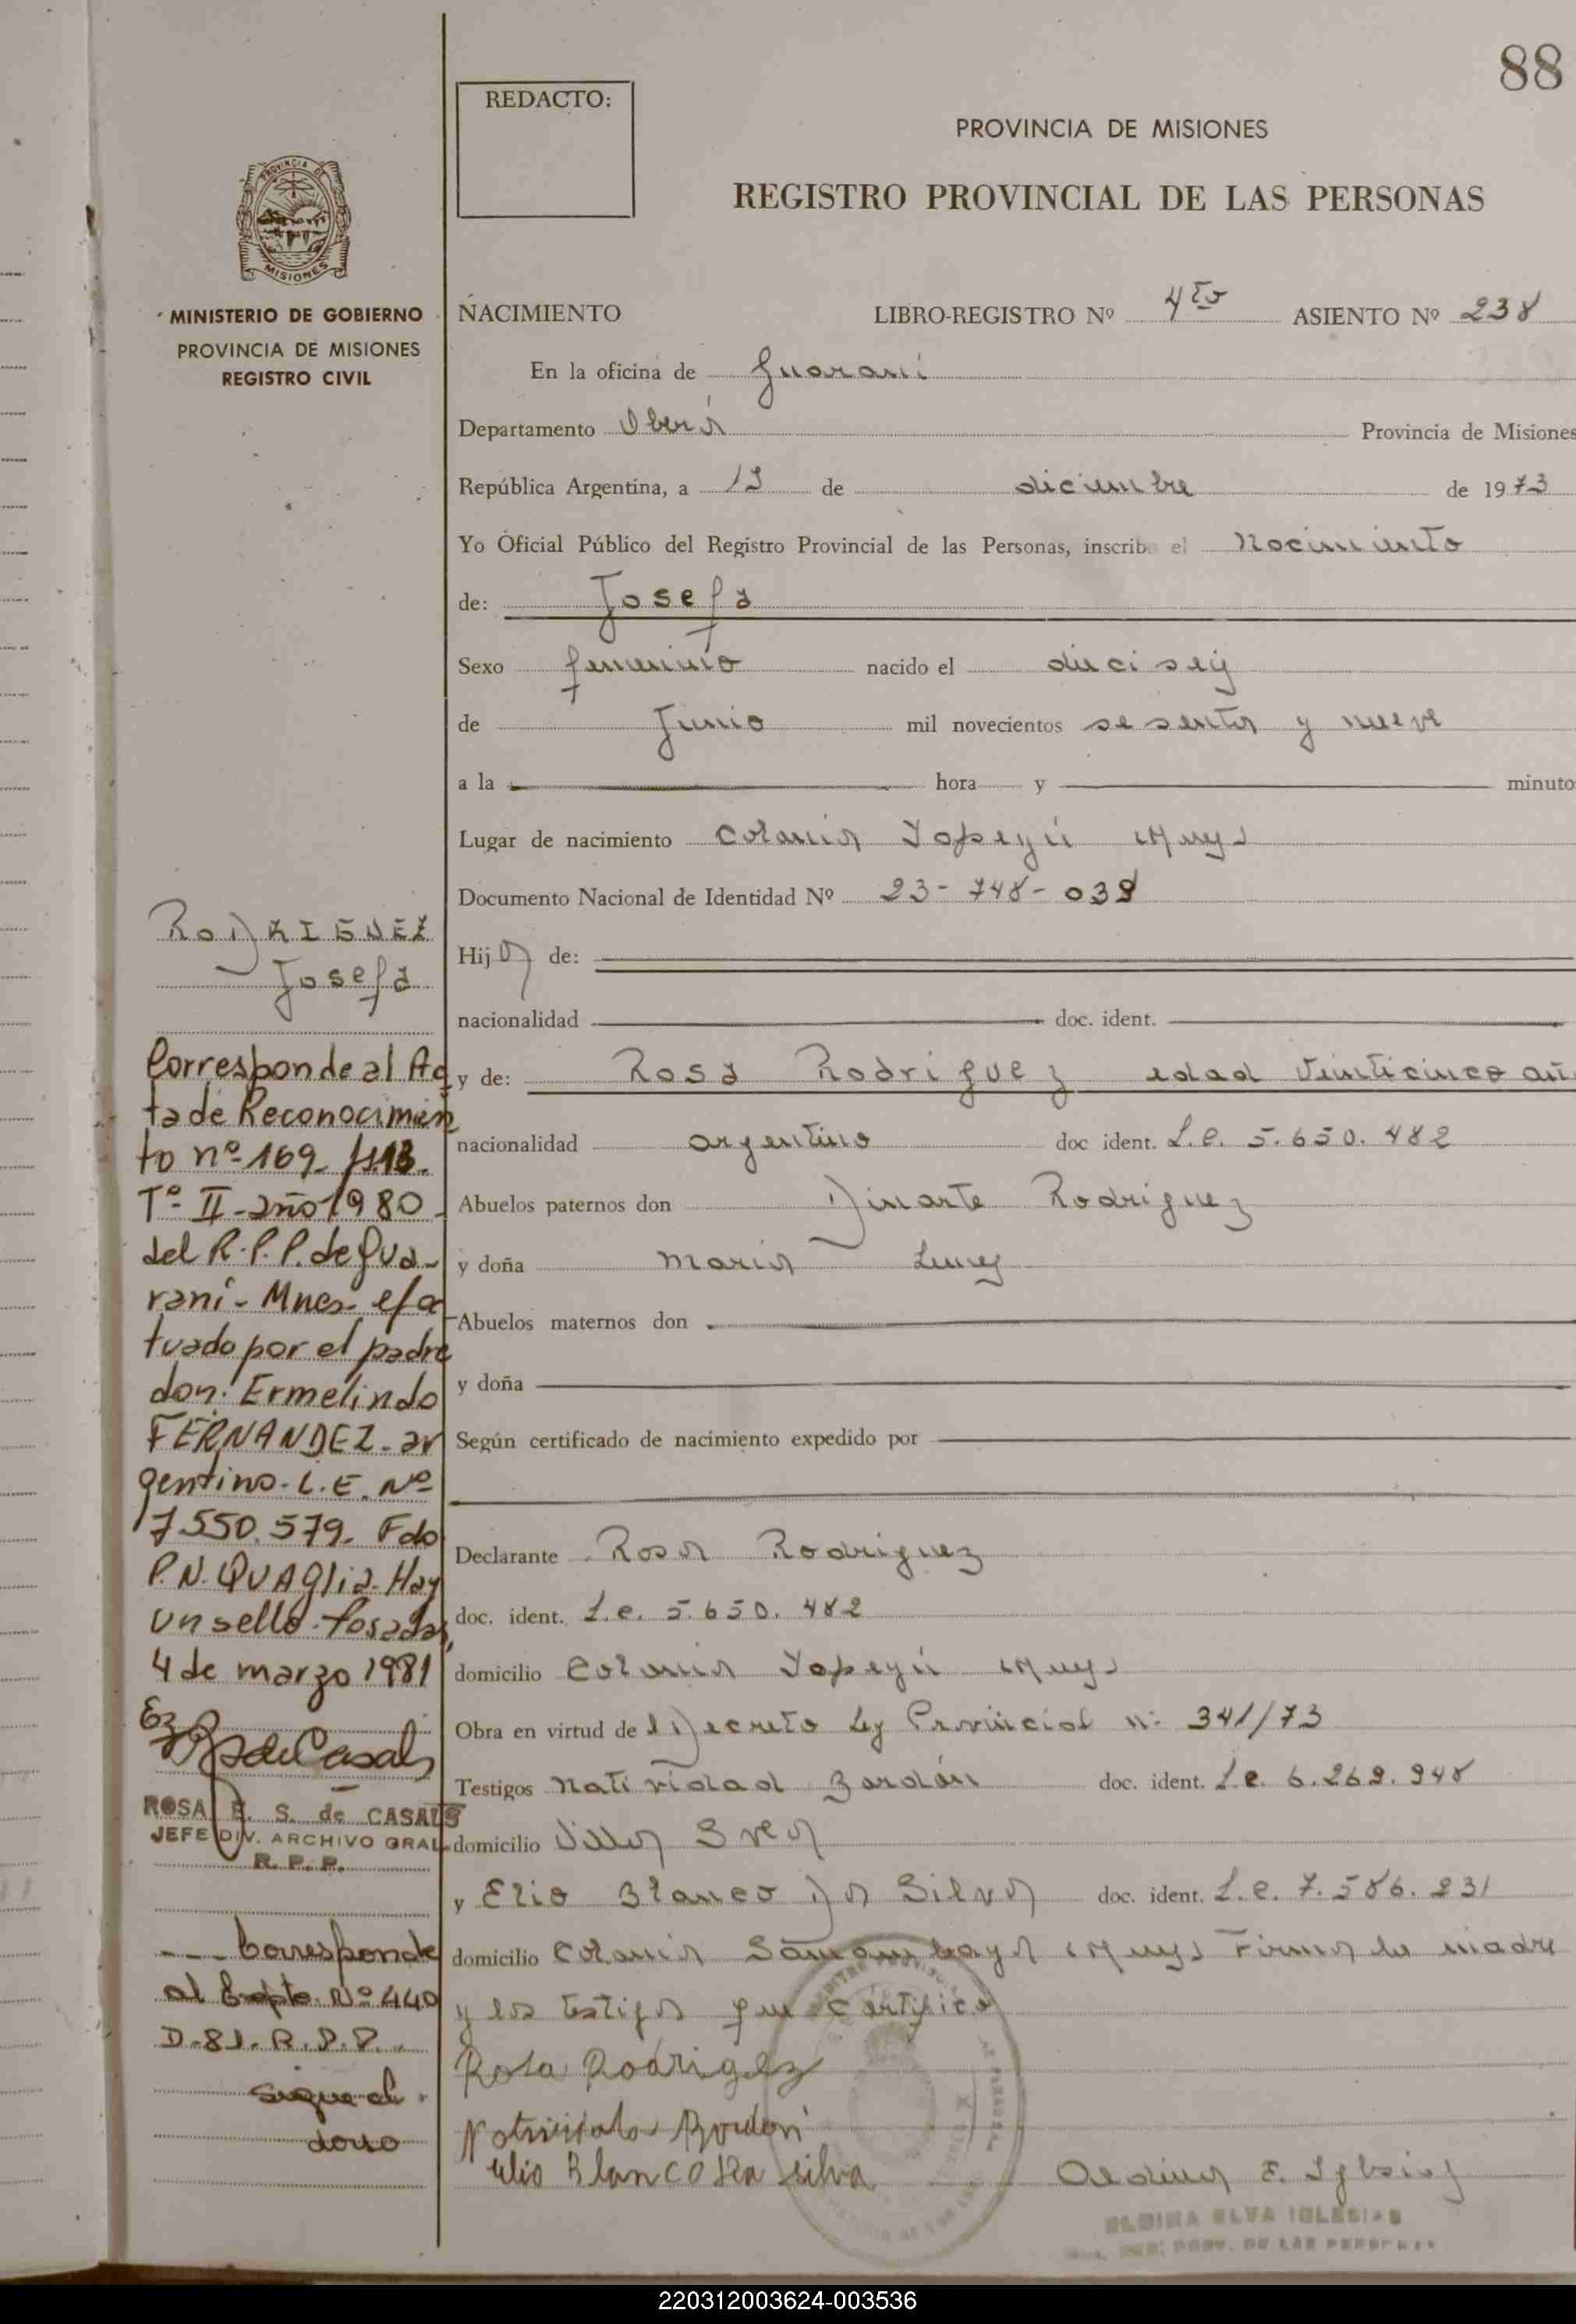 88
REDACTO:
PROVINCIA DE MISIONES
REGISTRO PROVINCIAL DE LAS PERSONAS
PROVINCIA DE
MISIONES
MINISTERIO DE GOBIERNO
PROVINCIA DE MISIONES
REGISTRO CIVIL
NACIMIENTO LIBRO-REGISTRO Nº 4to ASIENTO Nº 238
En la oficina de Guaraní
Departamento Oberá Provincia de Misiones
República Argentina, a 13 de diciembre de 1973
Yo Oficial Público del Registro Provincial de las Personas, inscribo el Nacimiento
de: Josefa
Sexo femenino nacido el dieciseis
de Junio mil novecientos sesenta y nueve
a la hora y minuto
Lugar de nacimiento Colonia Yapeyú Mnes
Documento Nacional de Identidad Nº 23-748-038
Hija de:
nacionalidad doc. ident.
y de: Rosa Rodriguez edad Veinticinco añ
nacionalidad argentina doc ident. L.C. 5.650.482
Abuelos paternos don Duarte Rodriguez
y doña Maria
Abuelos maternos don
y doña
Según certificado de nacimiento expedido por
Declarante Rosa Rodriguez
doc. ident. L.C. 5.650.482
domicilio Colonia Yapeyú Mnes
Obra en virtud del Decreto Ley Provincial Nº 341/73
Testigos Natividad Bordón doc. ident. L.C. 6.269.948
domicilio Villa Svea
y Elio Blanco Da Silva doc. ident. L.E. 7.586.231
domicilio Colonia Samambaya Mnes Firma la madre
y los testigos que certifico
Rosa Rodrigez
Natividad Bordon
Elio Blanco Da Silva
E. Iglesias
ELVA IGLESIAS
RODRIGUEZ
Josefa
Corresponde al Ac
ta de Reconocimien
to nº 169- fs. 113-
Tº II-año 1980-
del R.P.P. de Gua-
rani- Mnes- efec
tuado por el padre
don: Ermelindo
FERNANDEZ- ar
gentino- L.E. Nº
7.550.579- Fdo
P.N. QUAglia- Hay
un sello- Posadas,
4 de marzo 1981
E. de Casals
ROSA E. S. de CASALS
JEFE DIV. ARCHIVO GRAL
R. P. P.
Corresponde
al Expte. Nº 440
D-81- R.P.P.
sigue al
dorso
220312003624-003536